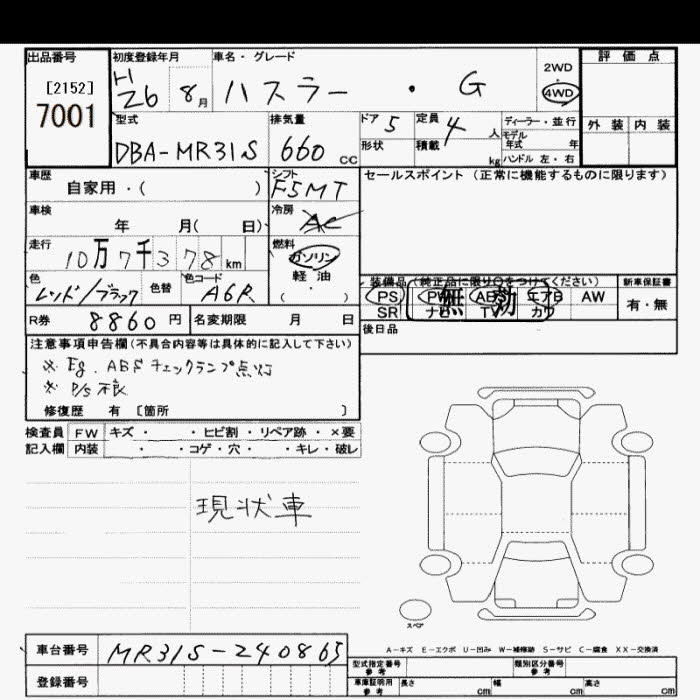 出品番号 初度登録年月 車名・グレード 評価点
[2152] H 2WD
7001 26 8月 ハスラー ・ G 4WD
型式 排気量 ドア 5 定員 4 人 ディーラー・並行 外装 内装
DBA-MR31S 660 CC 形状 積載 kg モデル年式 年
ハンドル 左・右
車歴 自家用・( ) シフト F5MT セールスポイント(正常に機能するものに限ります)
車検 年 月( 日) 冷房 AC
走行 10万7千378km 燃料 ガソリン・軽油
( )
色 レッド/ブラック 色替 色コード A6R 装備品(純正品に限り○をつけてください) 新車保証書
PS PW ABS エアB AW 有・無
SR ナビ TV カワ
無効
R券 8860円 名変期限 月 日 後日品
注意事項申告欄(不具合内容等は具体的に記入して下さい)
※ Eg. ABS チェックランプ点灯
※ P/S 不良
修復歴 有 [箇所 ]
検査員 FW キズ・ ・ヒビ割・リペア跡・×要
記入欄 内装 ・ ・コゲ・穴・ ・キレ・破レ
現状車
スペア
A-キズ E-エクボ U-凹み W-補修跡 S-サビ C-腐食 XX-交換済
車台番号 MR31S-240865 型式指定番号 参考 類別区分番号 参考
登録番号 車庫証明用 参考 長さ cm 幅 cm 高さ cm